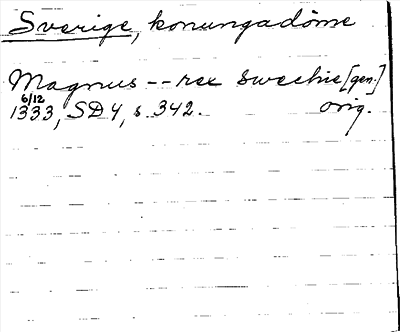 Sverige, konungadöme
Magnus -- rex Swechie [gen.]
6/12
1333, SD 4, s. 342. orig.